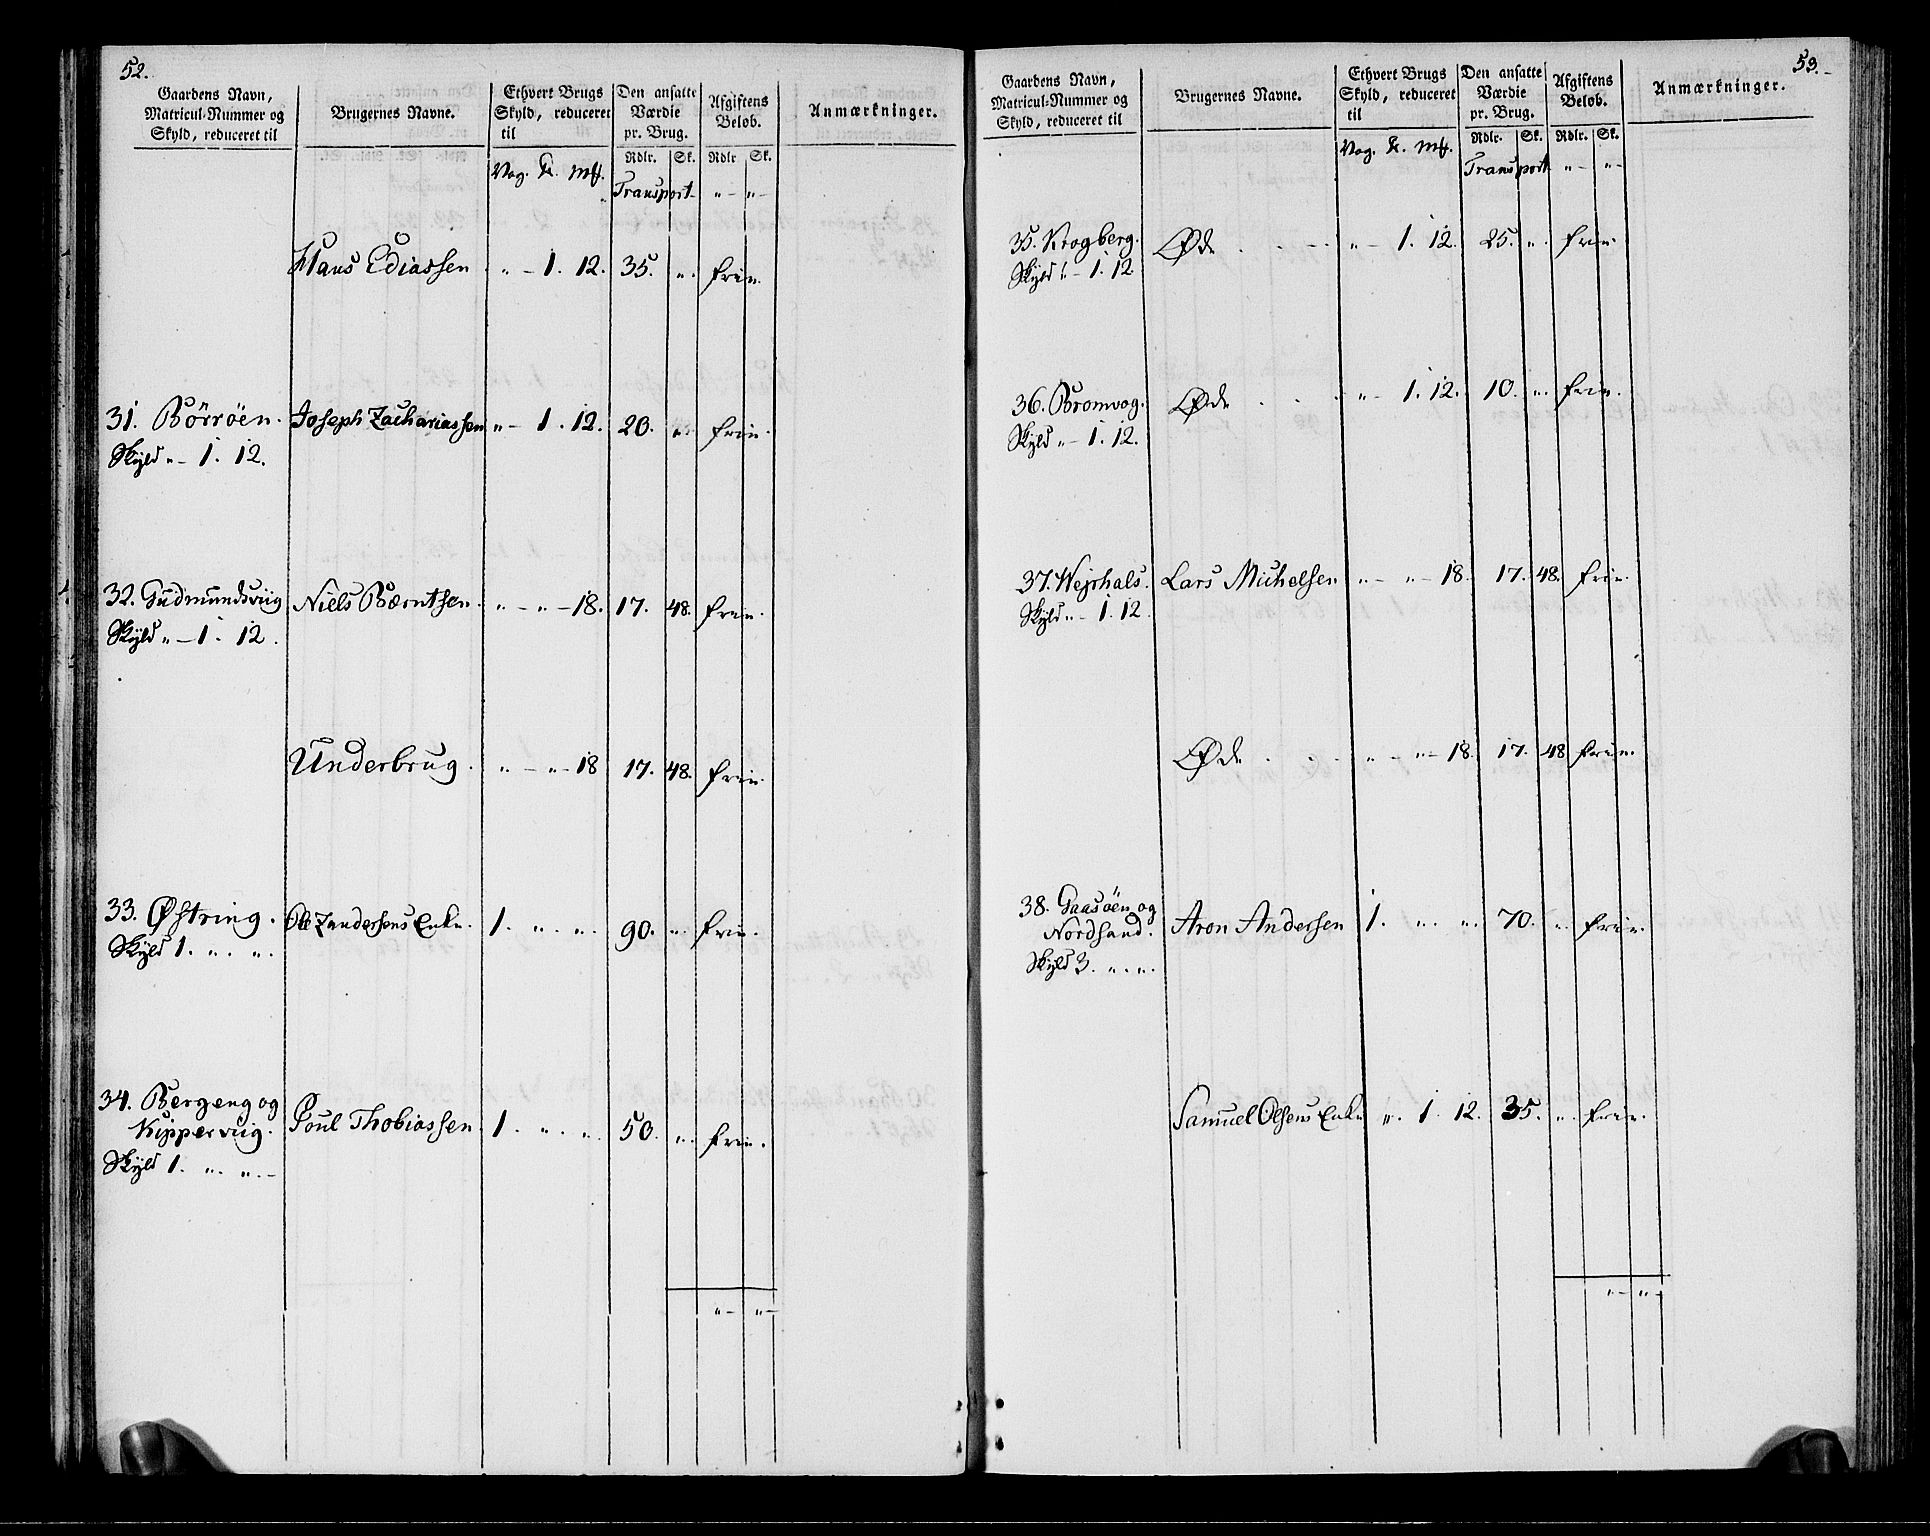 52.
Gaardens Navn, Matricul-Nummer og Skyld, reduceret til
Brugernes Navne.
Ethvert Brugs Skyld, reduceret til
Den ansatte Værdie pr. Brug.
Afgiftens Beløb.
Anmærkninger.
Rdlr. Sk. Rdlr Sk.
Vog. Mk.
Transport „ — „ —
Hans Ediassen „ — 1. 12. 35. „ frie.
31. Börröen. Joseph Zachariassen „ — 1. 12. 20. „ frie.
Skyld „ — 1. 12.
32. Gudmundsviig Niels Bærntsen. „ — „ — 18. 17. 48. frie.
Skyld „ — 1. 12.
Underbrug. „ — „ — 18 17. 48. frie.
33. Østring. Ole Zandersens Enke. 1. „ „ 90. „ frie.
Skyld 1. „ „
34. Bergeng og Poul Thobiassen 1. „ „ 50. „ frie.
Kippervuig.
Skyld 1. „ „ —
„ — „ —
53.
Gaardens Navn, Matricul-Nummer og Skyld, reduceret til
Brugernes Navne.
Ethvert Brugs Skyld, reduceret til
Den ansatte Værdie pr. Brug.
Afgiftens Beløb.
Anmærkninger.
Rdlr. Sk. Rdlr. Sk.
Vog. Mk.
Transport „ — „ —
35. Krogberg. Øde „ — 1. 12. 25. „ frie.
Skyld „ — 1. 12.
36. Bromvog. Øde „ — 1. 12. 10. „ frie.
Skyld „ — 1. 12.
37. Wejrhals. Lars Michelsen „ — „ — 18. 17. 48. frie.
Skyld „ — 1. 12.
Øde „ — „ — 18. 17. 48 frie.
38. Gaasöen og Aron Andersen 1. „ „ 70. „ frie.
Nordsand.
Skyld 3. „ „
Samuel Olsens Enke „ 1. 12. 35. „ frie.
„ — „ —